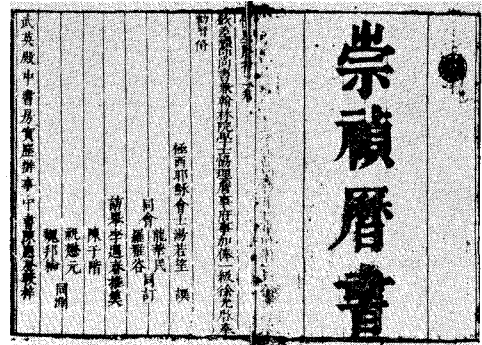 崇禎曆書
欽差禮部尚書兼翰林院學士協理詹事府事加俸一級徐光啓奉
勅督修
極西耶穌會士湯若望撰
同會
龍華民
羅雅谷
同訂
訪舉李遇春
陳子階
祝懋元
同測
武英殿中書房實歷辦事中書